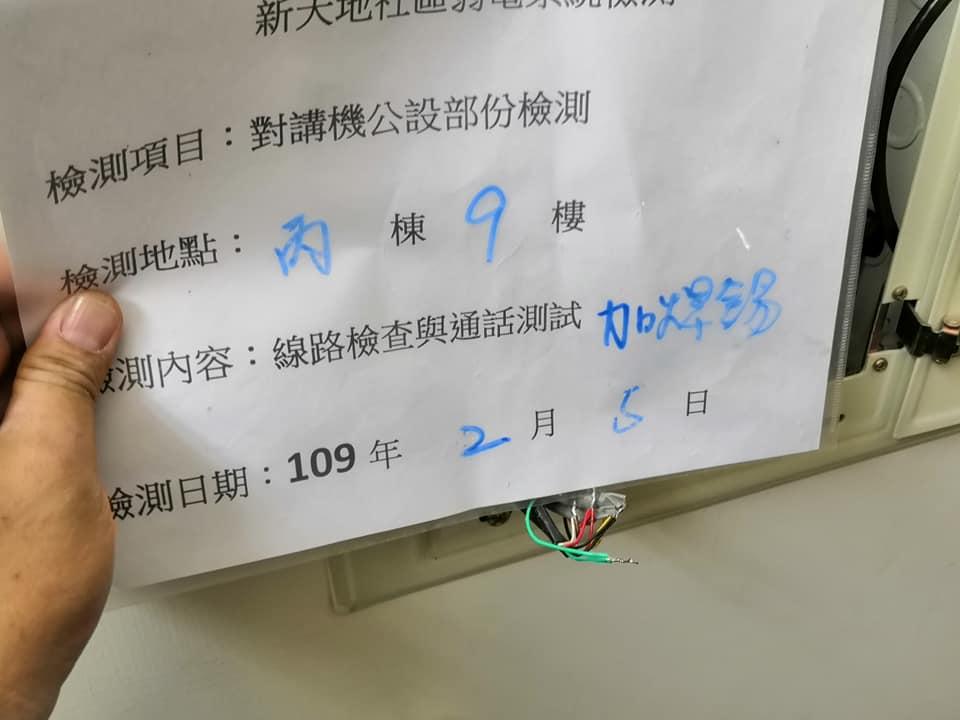 新天地社區弱電系統檢測
檢測項目：對講機公設部份檢測
檢測地點：丙 棟 9 樓
檢測內容：線路檢查與通話測試 加焊錫
檢測日期：109 年 2 月 5 日